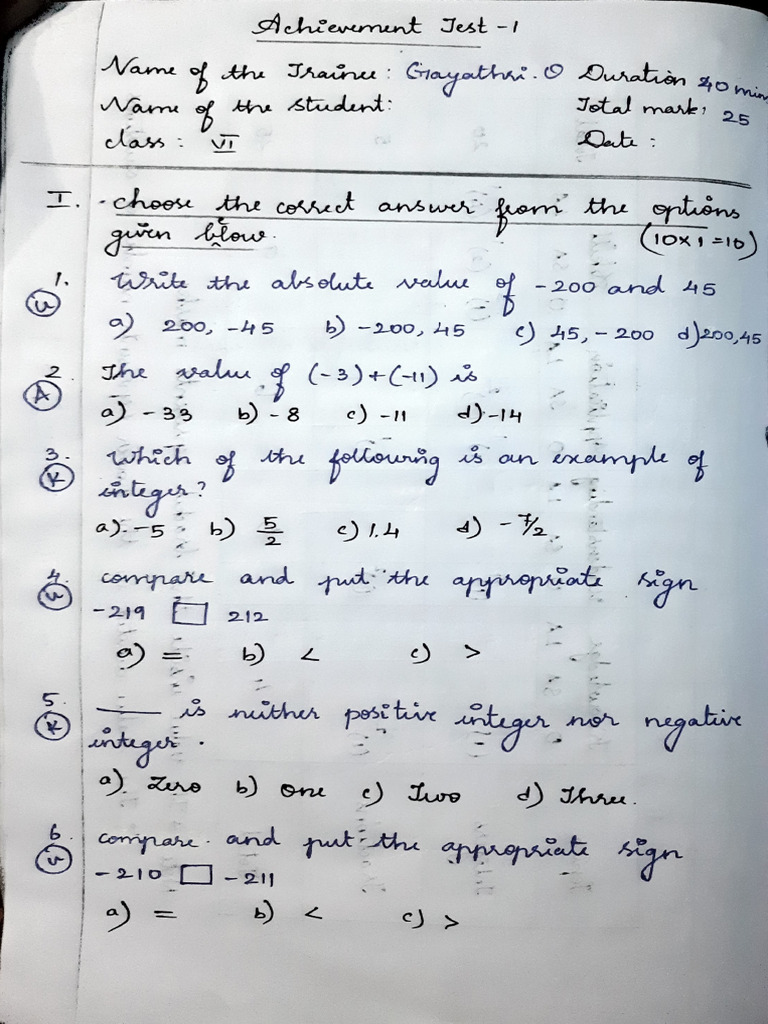 Achievement Test - 1
Name of the Trainee: Gayathri. O Duration 40 min
Name of the student: Total mark: 25
class: VI Date:
I. choose the correct answer from the options
given blow. (10x1=10)
1. Write the absolute value of -200 and 45
U
a) 200, -45 b) -200, 45 c) 45, -200 d) 200, 45
2. The value of (-3)+(-11) is
A
a) -33 b) -8 c) -11 d) -14
3. Which of the following is an example of
K
integer?
a) -5 b) 5/2 c) 1.4 d) -7/2
4. compare and put the appropriate sign
U
-219 □ 212
a) = b) < c) >
5. ___ is neither positive integer nor negative
K
integer.
a) Zero b) One c) Two d) Three.
6. compare and put the appropriate sign
U
-210 □ -211
a) = b) < c) >